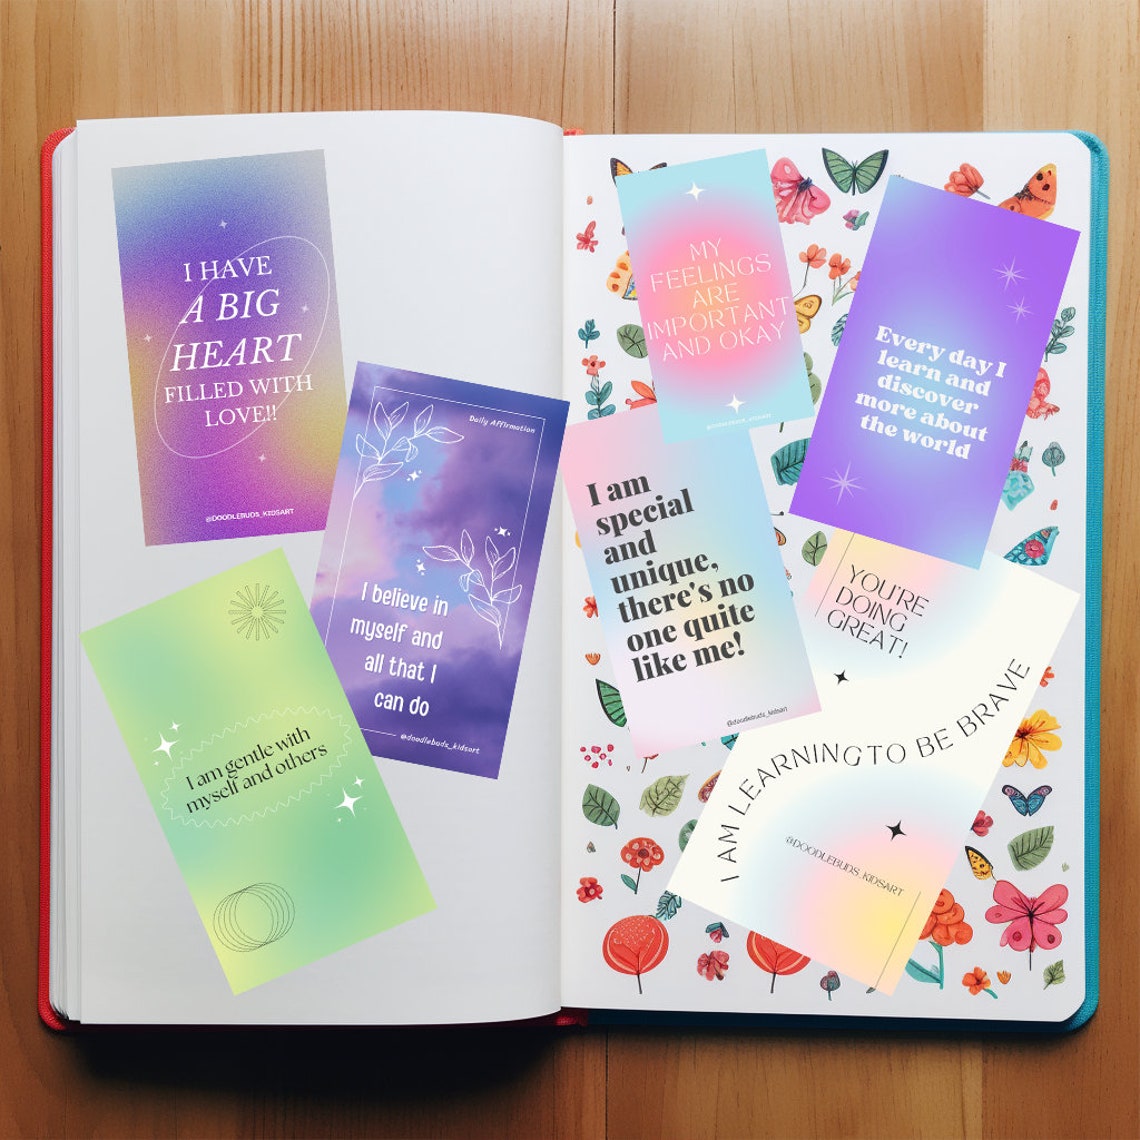 I HAVE
A BIG
HEART
FILLED WITH
LOVE!!
@DOODLEBUDS_KIDSART
Daily Affirmation
I believe in
myself and
all that I
can do
@doodlebuds_kidsart
I am gentle with
myself and others
MY
FEELINGS
ARE
IMPORTANT
AND OKAY
@DOODLEBUDS_KIDSART
Every day I
learn and
discover
more about
the world
I am
special
and
unique,
there's no
one quite
like me!
@doodlebuds_kidsart
YOU'RE
DOING
GREAT!
I AM LEARNING TO BE BRAVE
@DOODLEBUDS_KIDSART